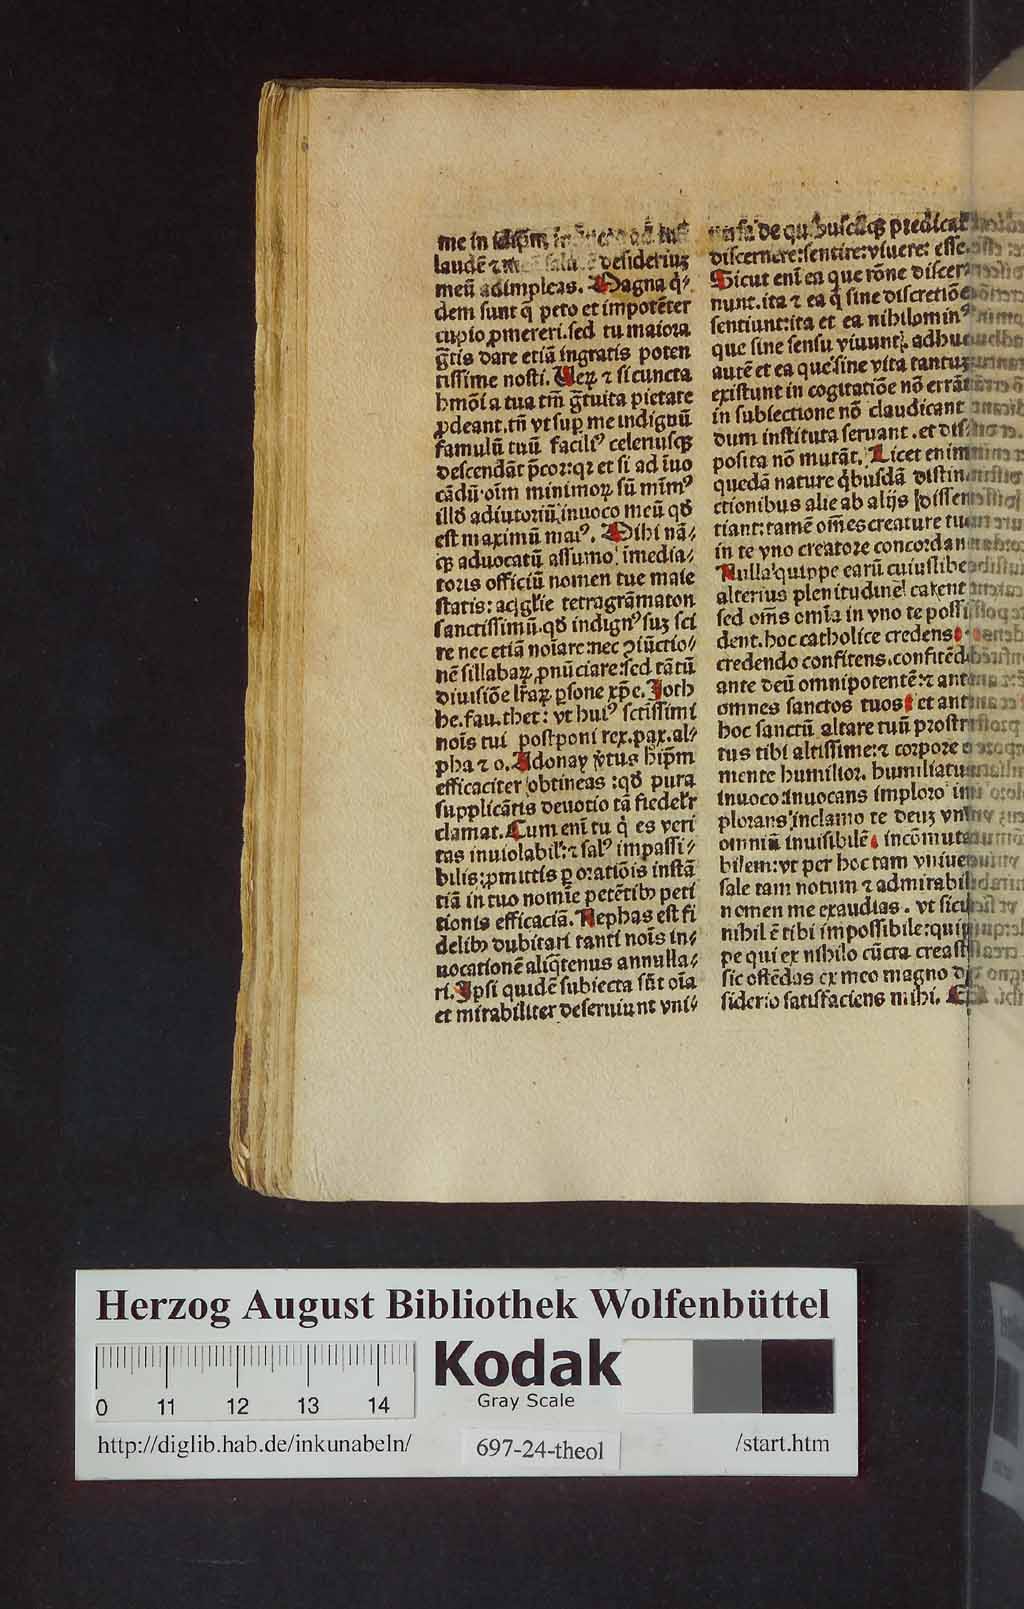 me in
laudē ⁊ desideriuꝫ
meū adimpleas. Magna q̇⸗
dem sunt q̄ peto et impotēter
cupio ꝓmereri. sed tu maiora
g̃tis dare etiā ingratis poten
tissime nosti. Ueꝝ ⁊ si cuncta
hmōi a tua tm̄ g̃tuita pietate
ꝓdeant. tn̄ vt suꝑ me indignū
famulū tuū faciliꝰ celeriusqꝫ
descendāt p̄cor: qꝛ et si ad īuo
cādū oīm minimoꝝ sū mīmꝰ
illđ adiutoriū inuoco meū qđ
est maximū maiꝰ. Mihi nā⸗
qꝫ aduocatū assumo imedia⸗
toris officiū nomen tue maie
statis: ac gl̄ie tetragrāmaton
sanctissimū. qđ indignꝰ suꝫ sci
re nec etiā noīare: nec ꝯiūctio⸗
nē sillabaꝝ ꝓnūciare: sed tātū
diuisiōe lr̄aꝝ ꝑsone xp̄e. Joth
he. fau. thet: vt huiꝰ sctissimi
noīs tui postponi rex. pax. al⸗
pha ⁊ o. Adonay v̓tus hip̄m
efficaciter obtineas: qđ pura
supplicātis deuotio tā fiedel̓r
clamat. Cum enī tu q̇ es veri
tas inuiolabil̓: ⁊ salꝰ impassi⸗
bilis: ꝓmittis ꝑ oratiōis instā
tiā in tuo nomīe petētibꝰ peti
tionis efficaciā. Nephas est fi
delibꝰ dubitari tanti noīs in⸗
uocationē aliq̄tenus annulla⸗
ri. Ipsi quidē subiecta sūt oīa
et mirabiliter deseruiunt vni⸗
de quibuscūqꝫ predicat
discernere: sentire: viuere: esse.
Sicut enī ea que rōne discer
nunt. ita ⁊ ea q̄ sine discretiōe
sentiunt: ita et ea nihilominꝰ
que sine sensu viuunt. adhuc
autē et ea que sine vita tantuꝫ
existunt in cogitatiōe nō errāt
in subiectione nō claudicant
dum instituta seruant. et dis⸗
posita nō mutāt. Licet enim
quedā nature q̇busdā distin
ctionibus alie ab alijs dissen
tiant: tamē oēs creature tue
in te vno creatore concordan
Nulla quippe earū cuiuslibe
alterius plenitudine carent
sed oēs omīa in vno te possi
dent. hoc catholice credens
credendo confitens. confitēd
ante deū omnipotentē: ⁊ ante
omnes sanctos tuos et ant
hoc sanctū altare tuū prostr
tus tibi altissime: ⁊ corpore
mente humilior. humiliatu
inuoco: inuocans imploro im
plorans inclamo te deuꝫ vnū
omniū inuisibilē incōmuta
bilem: vt per hoc tam vniue
sale tam notum ⁊ admirabil
nomen me exaudias. vt sicut
nihil ē tibi impossibile: quip
pe qui ex nihilo cūcta creast
sic ostēdas ex meo magno d
siderio satisfaciens mihi.
Herzog August Bibliothek Wolfenbüttel
0 11 12 13 14
Kodak
Gray Scale
http://diglib.hab.de/inkunabeln/ 697-24-theol /start.htm